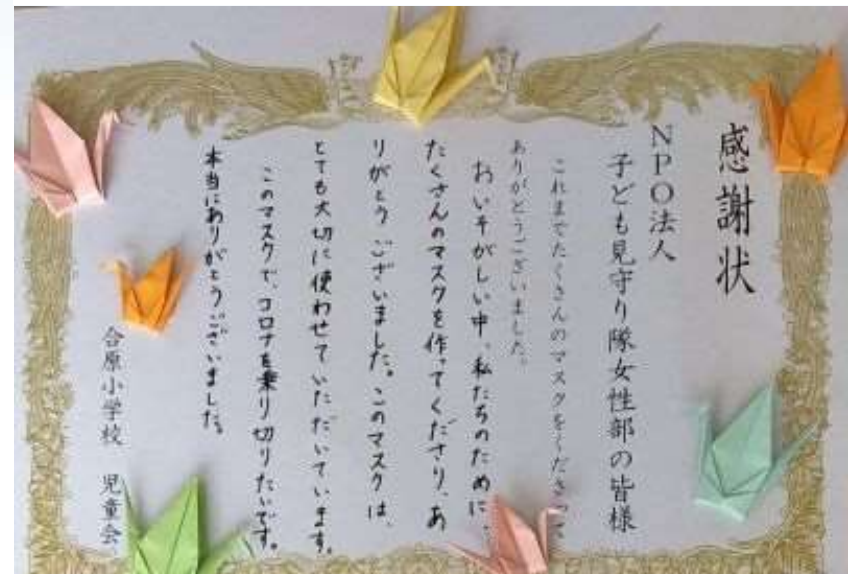 感謝状
NPO法人
子ども見守り隊女性部の皆様
これまでたくさんのマスクをくださって
ありがとうございました。
おいそがしい中、私たちのために、
たくさんのマスクを作ってくださり、あ
りがとうございました。このマスクは、
とても大切に使わせていただいています。
このマスクで、コロナを乗り切りたいです。
本当にありがとうございました。
合原小学校 児童会